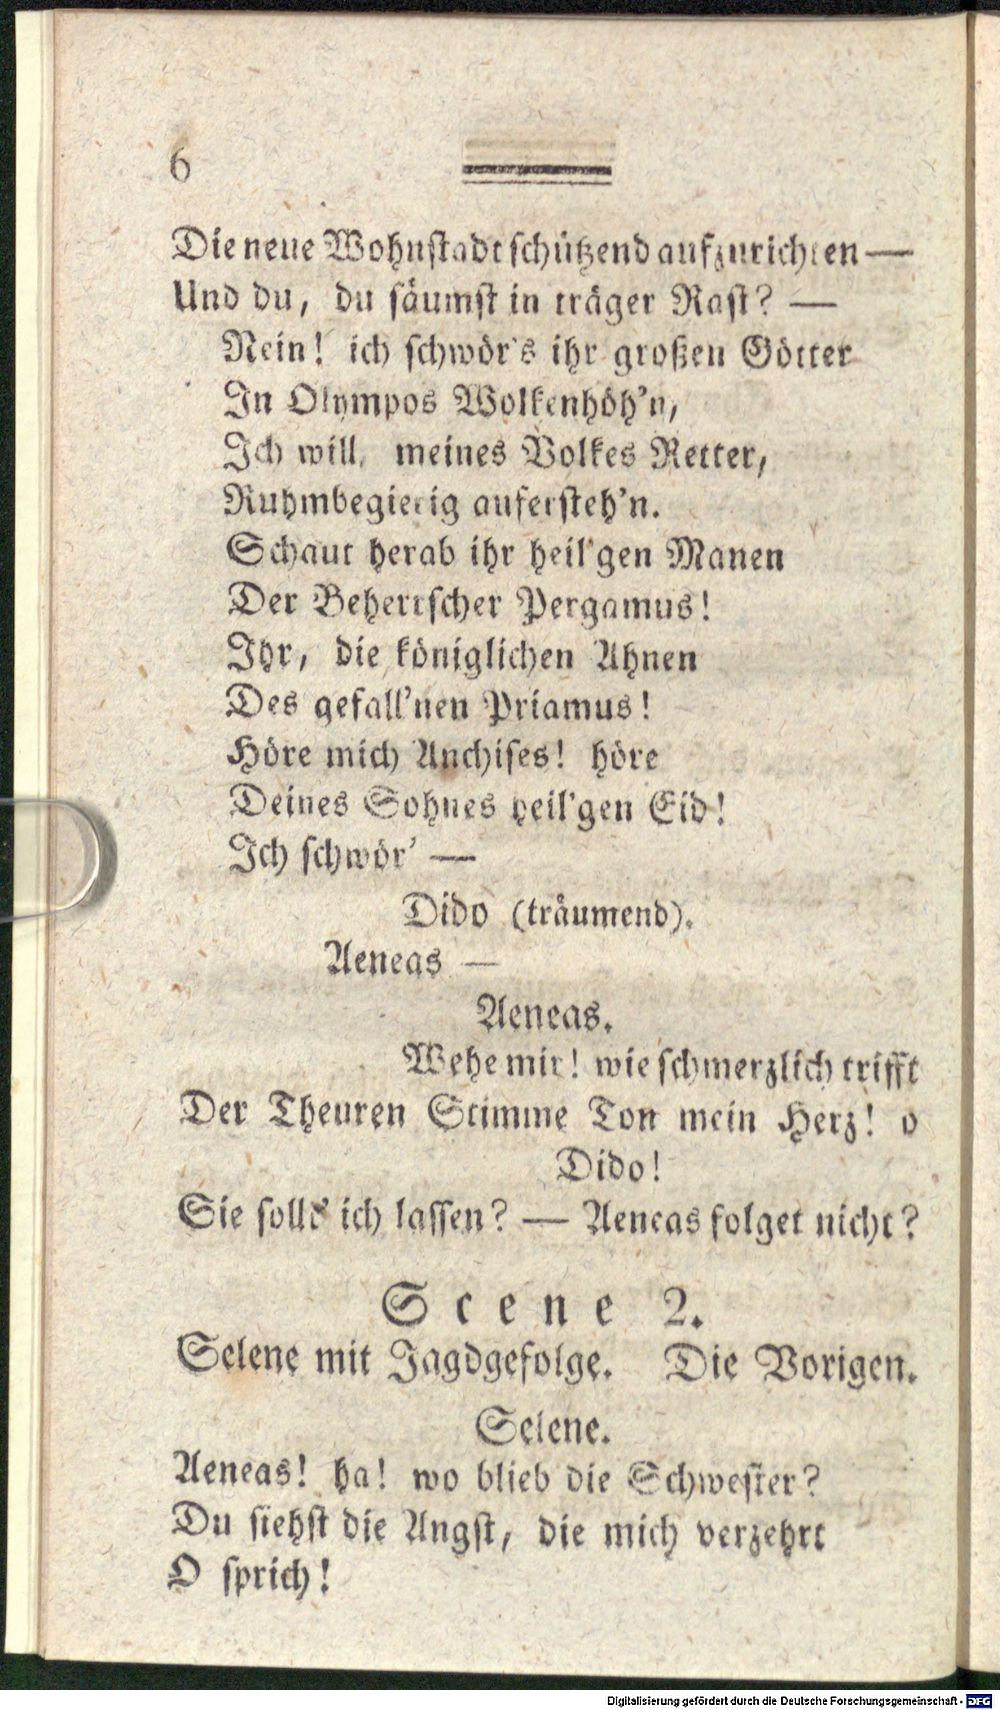 6
Die neue Wohnstadt schützend aufzurichten —
Und du, du säumst in träger Rast? —
Nein! ich schwör's ihr großen Götter
In Olympos Wolkenhöh'n,
Ich will, meines Volkes Retter,
Ruhmbegierig aufersteh'n.
Schaut herab ihr heil'gen Manen
Der Beherrscher Pergamus!
Ihr, die königlichen Ahnen
Des gefall'nen Priamus!
Höre mich Anchises! höre
Deines Sohnes heil'gen Eid!
Ich schwör' —
Dido (träumend).
Aeneas —
Aeneas.
Wehe mir! wie schmerzlich trifft
Der Theuren Stimme Ton mein Herz! o
Dido!
Sie sollt' ich lassen? — Aeneas folget nicht?
Scene 2.
Selene mit Jagdgefolge. Die Vorigen.
Selene.
Aeneas! ha! wo blieb die Schwester?
Du siehst die Angst, die mich verzehrt
O sprich!
Digitalisierung gefördert durch die Deutsche Forschungsgemeinschaft - DFG